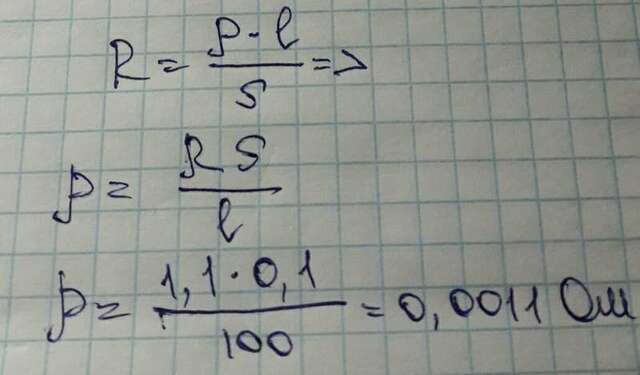 R = ρ · l / S =>
ρ = R S / l
ρ = 1,1 · 0,1 / 100 = 0,0011 Ом